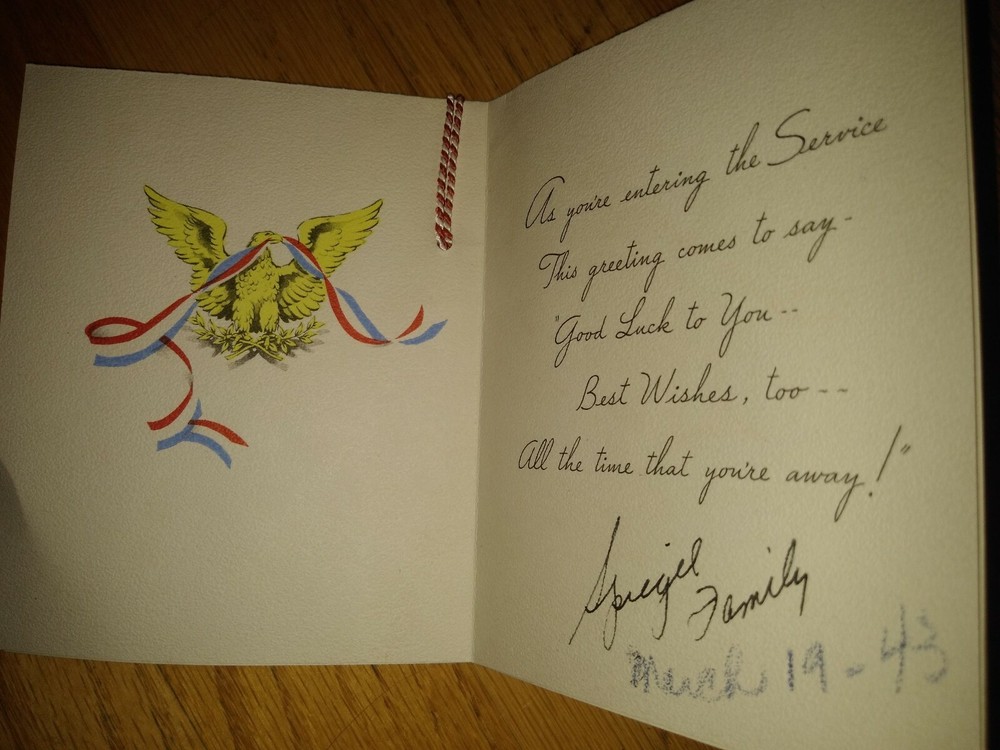 As you're entering the Service
This greeting comes to say-
"Good Luck to You--
Best Wishes, too--
All the time that you're away!"
Spiegel
Family
March 19-43